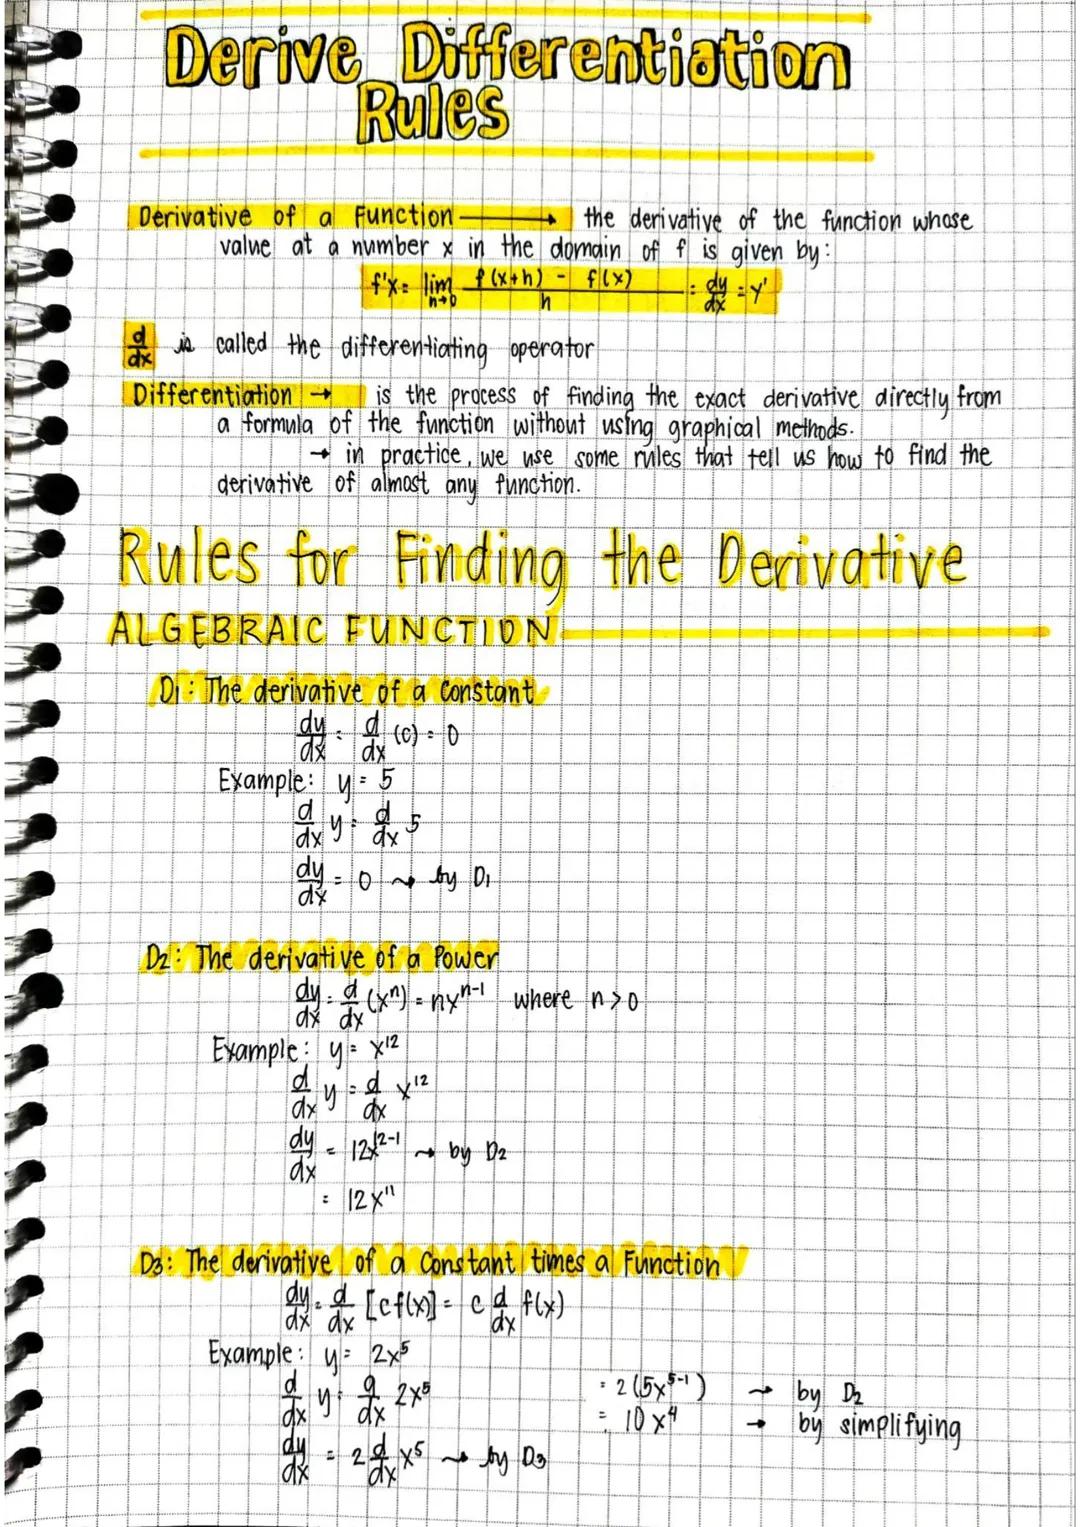 Derive Differentiation
Rules
Derivative of a Function → the derivative of the function whose
value at a number x in the domain of f is given by:
f'x = lim h→0 f(x+h) - f(x) / h = dy/dx = y'
d/dx is called the differentiating operator
Differentiation → is the process of finding the exact derivative directly from
a formula of the function without using graphical methods.
→ in practice, we use some rules that tell us how to find the
derivative of almost any function.
Rules for Finding the Derivative
ALGEBRAIC FUNCTION
D1: The derivative of a Constant
dy/dx = d/dx (c) = 0
Example: y = 5
d/dx y = d/dx 5
dy/dx = 0 → by D1
D2: The derivative of a Power
dy/dx = d/dx (x^n) = nx^n-1 where n > 0
Example: y = x^12
d/dx y = d/dx x^12
dy/dx = 12x^12-1 → by D2
= 12x^11
D3: The derivative of a Constant times a Function
dy/dx = d/dx [cf(x)] = c d/dx f(x)
Example: y = 2x^5
d/dx y = d/dx 2x^5
dy/dx = 2 d/dx x^5 → by D3
= 2(5x^5-1) → by D2
= 10x^4 → by simplifying